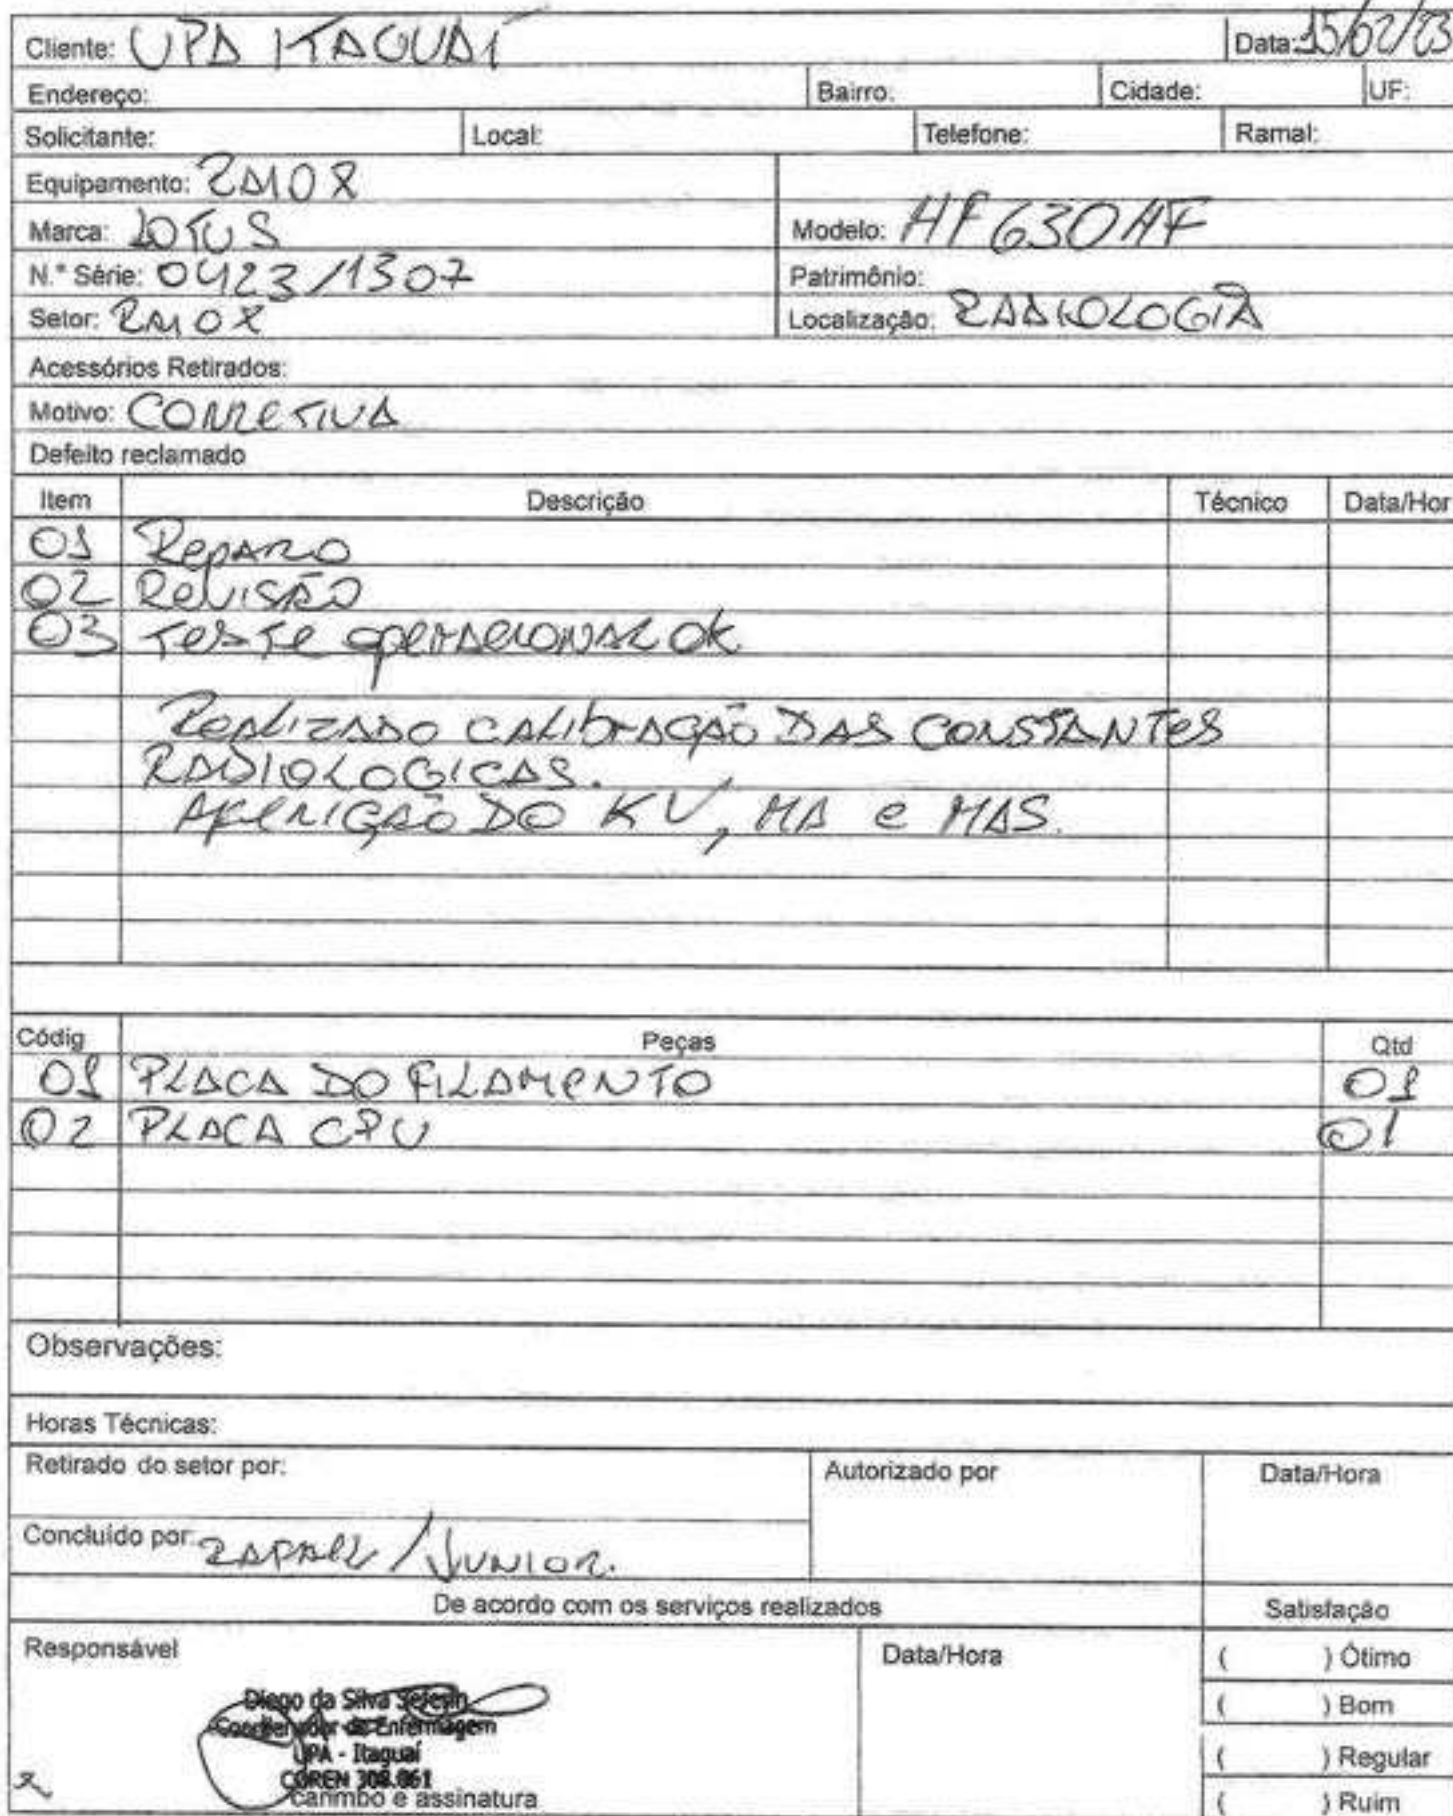 Cliente: UPA ITAGUAÍ Data: 15/02/23
Endereço: Bairro: Cidade: UF:
Solicitante: Local: Telefone: Ramal:
Equipamento: RAIO X
Marca: LOTUS Modelo: HF630HF
N.º Série: 0423/1307 Patrimônio:
Setor: RAIO X Localização: RADIOLOGIA
Acessórios Retirados:
Motivo: CORRETIVA
Defeito reclamado
Item Descrição Técnico Data/Hor
01 REPARO
02 REVISÃO
03 TESTE OPERACIONAL OK
REALIZADO CALIBRAÇÃO DAS CONSTANTES
RADIOLOGICAS.
AFERIÇÃO DO KV, MA e MAS.
Códig Peças Qtd
01 PLACA DO FILAMENTO 01
02 PLACA CPU 01
Observações:
Horas Técnicas:
Retirado do setor por: Autorizado por Data/Hora
Concluído por: RAFAEL / JUNIOR.
De acordo com os serviços realizados Satisfação
Responsável Data/Hora ( ) Ótimo
Diego da Silva
Coordenador de Enfermagem ( ) Bom
UPA - Itaguaí ( ) Regular
COREN 308.861
carimbo e assinatura ( ) Ruim